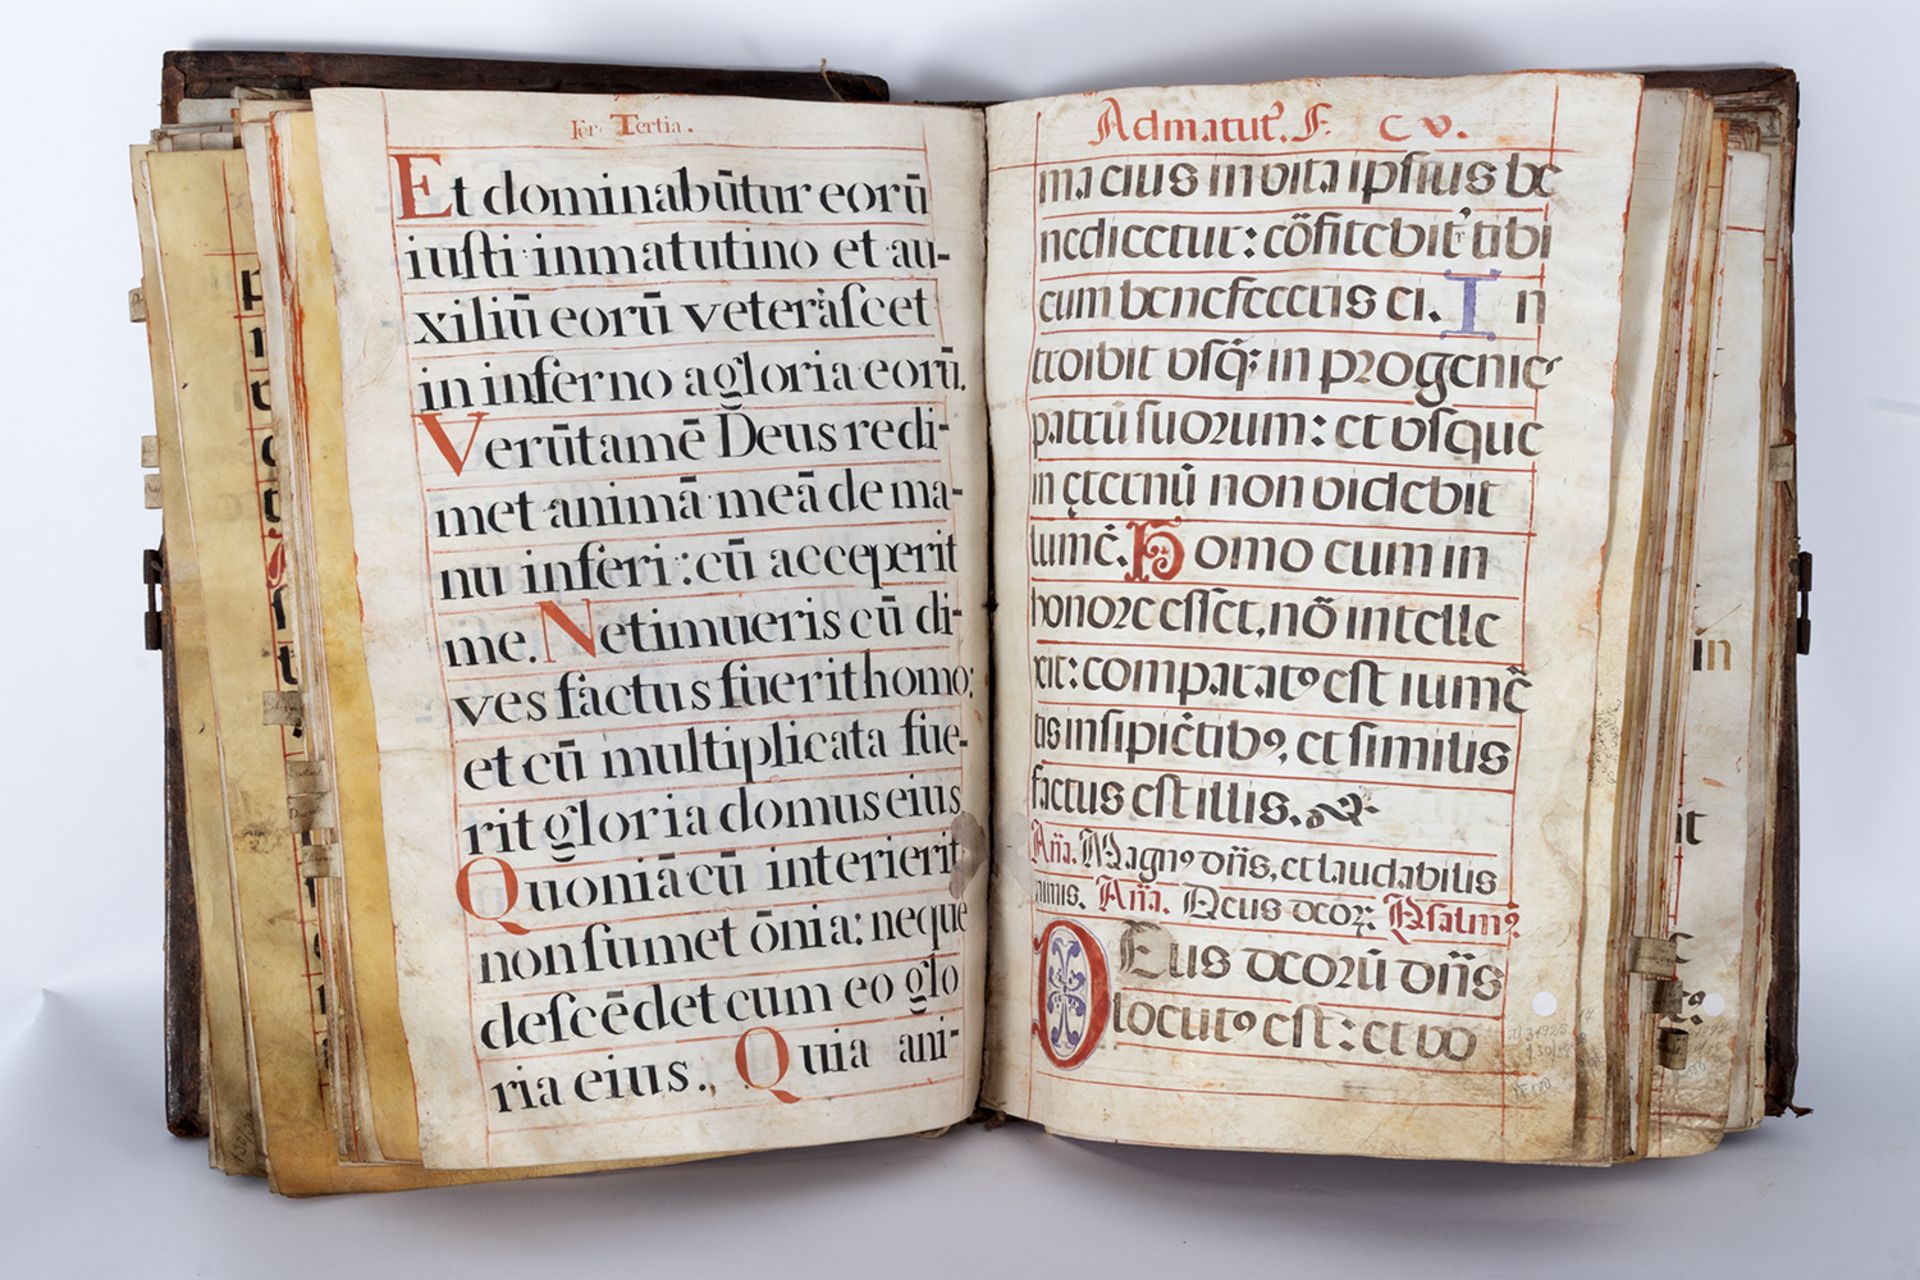 Fer. Tertia.
Et dominabūtur eorū
iuſti inmatutino et au-
xiliū eorū veteraſcet
in inferno a gloria eorū.
Verūtamē Deus redi-
met animā meā de ma-
nu inferi: cū acceperit
me. Ne timueris cū di-
ves factus fuerit homo:
et cū multiplicata fue-
rit gloria domus eius
Quoniā cū interierit
non ſumet ōnia: neque
deſcēdet cum eo glo
ria eius. Quia ani-
Ad matut. F. CV.
ma eius in vita ipſius be
nedicetur: cōfitebitr tibi
cum benefeceris ei. In
troibit vſq; in progenie
patrū ſuorum: et vſque
in ęternū non videbit
lumē. Homo cum in
honore eſſet, nō intelle
xit: comparatꝰ eſt iumē
tis inſipiētibꝰ, et ſimilis
factus eſt illis.
Aña. Magnꝰ dñs, et laudabilis
nimis. Aña. Deus deoꝝ: Pſalmꝰ.
DEus deorū dñs
locutꝰ eſt: et vo
in